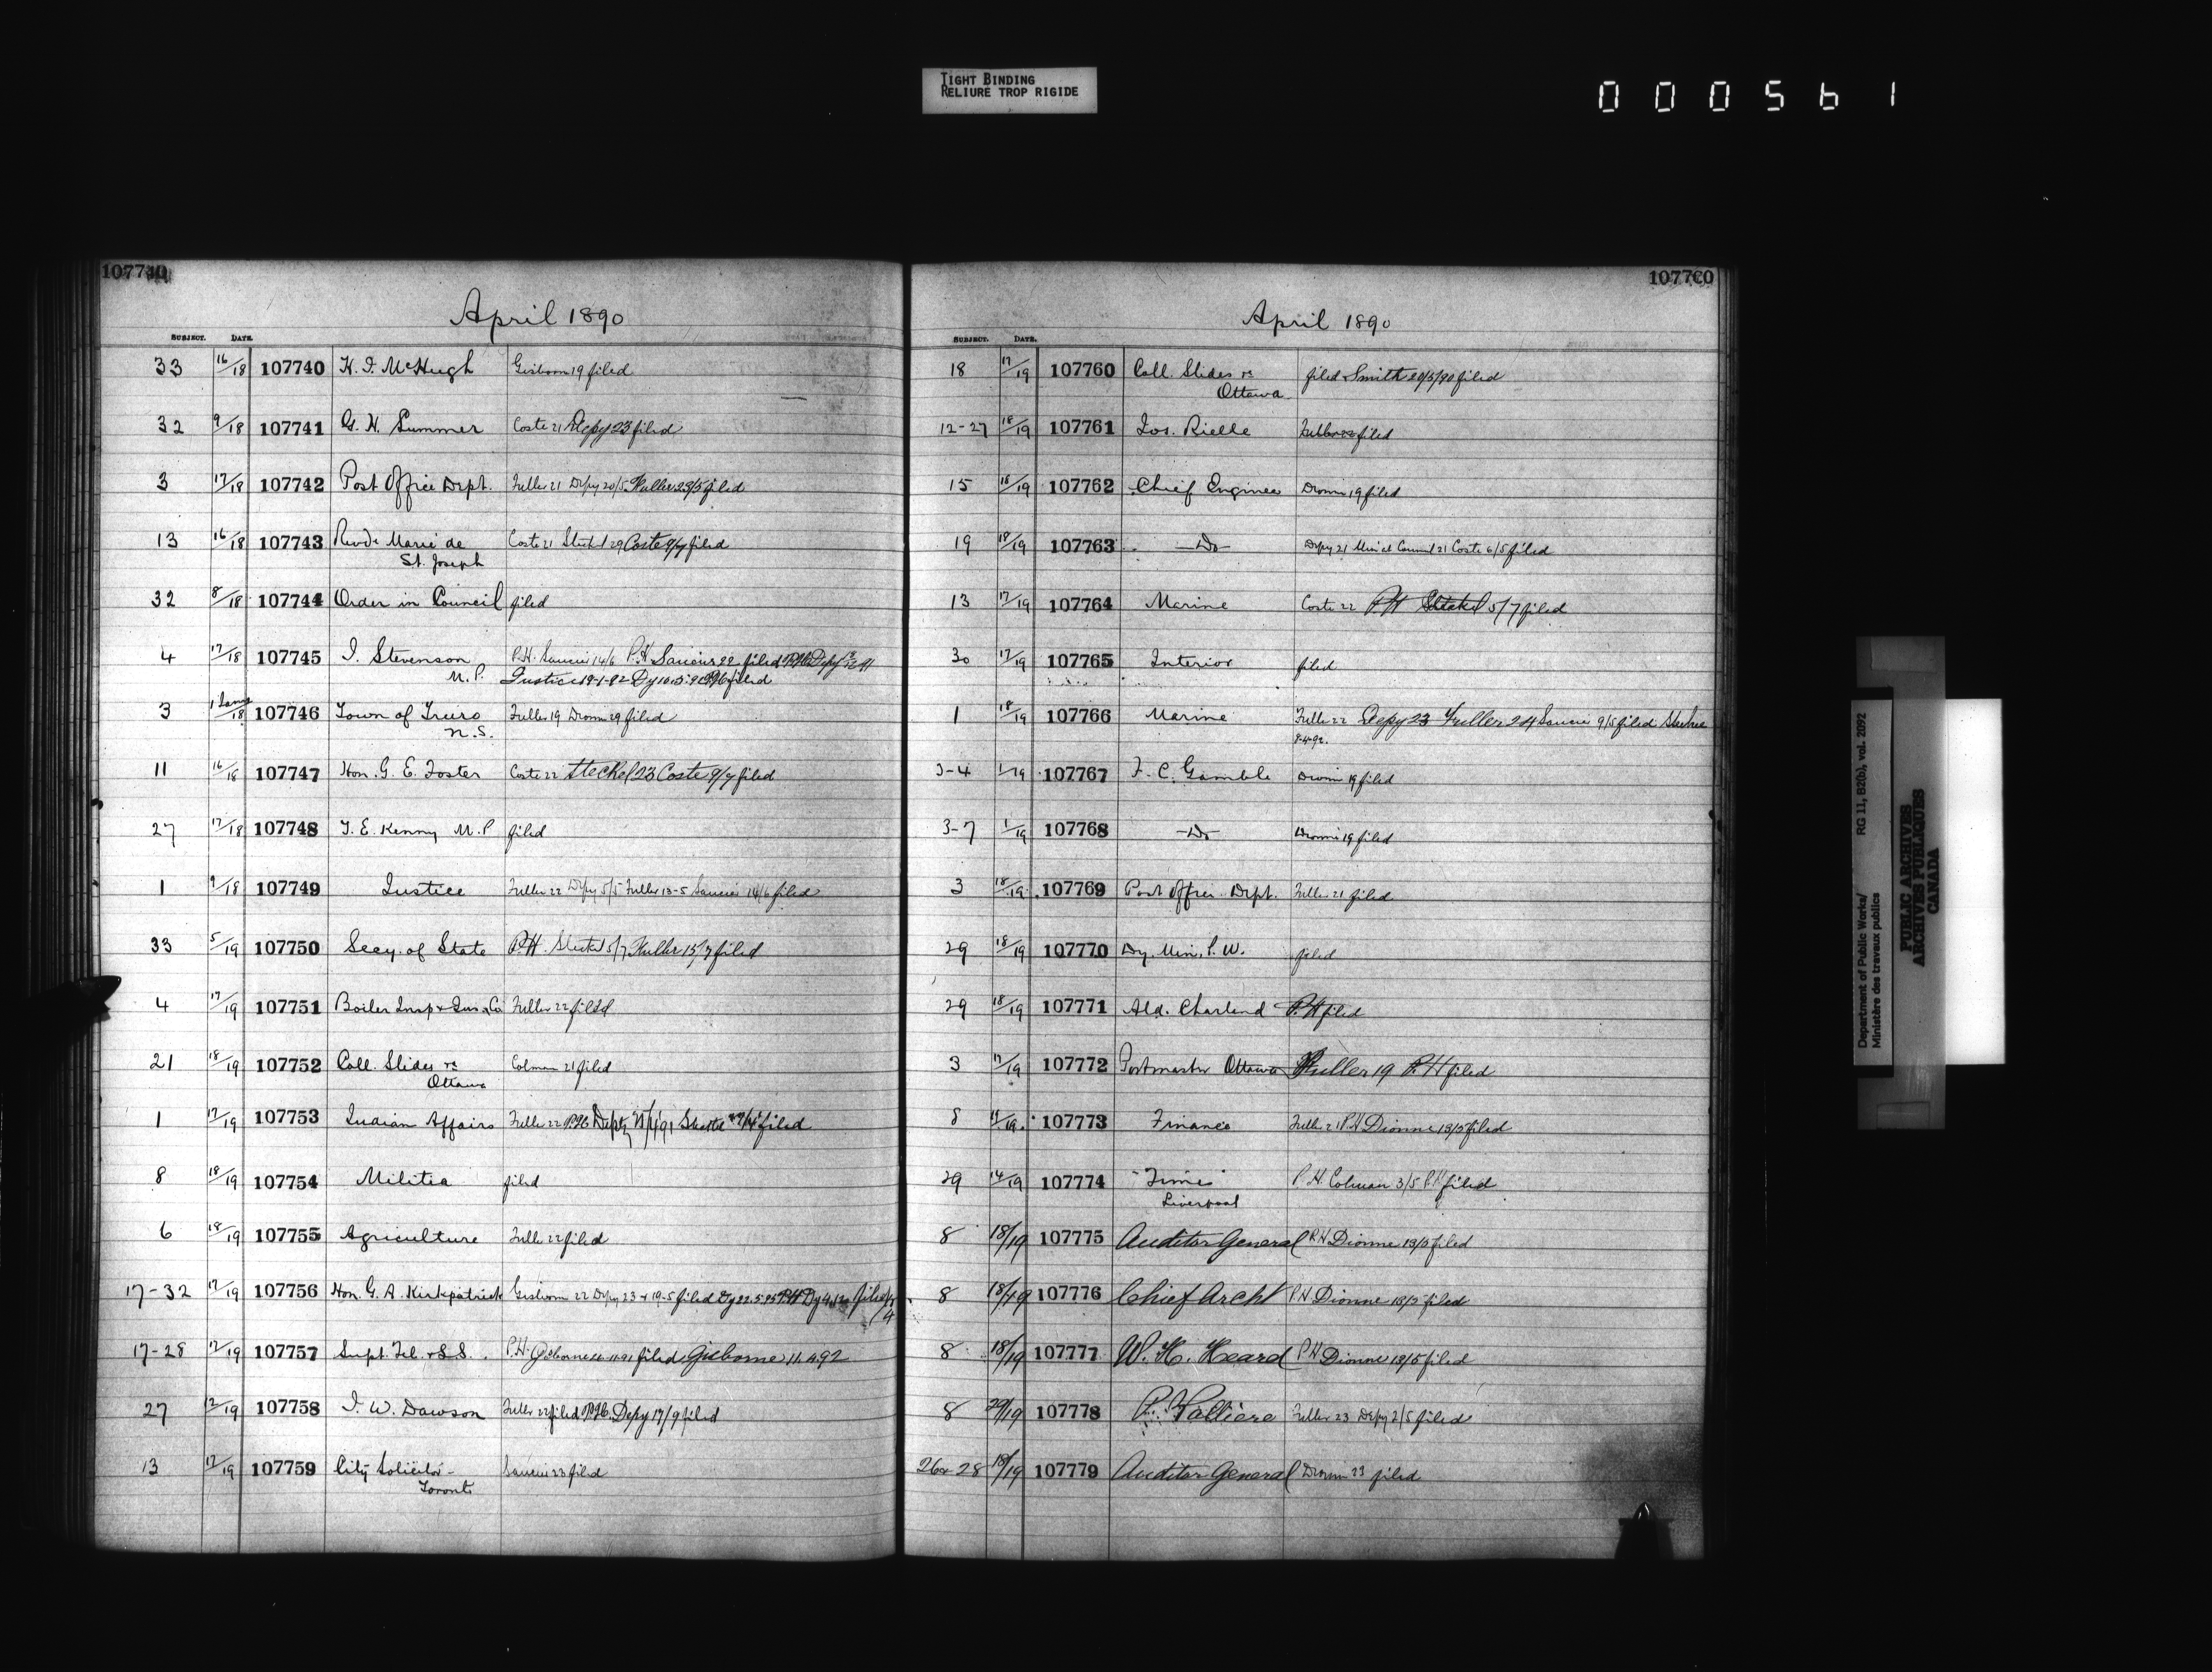 TIGHT BINDING
RELIURE TROP RIGIDE
000561
107740
April 1890
SUBJECT. DATE.
33 16/18 107740 H. F. McHugh Gisborn 19 filed
32 9/18 107741 G. H. Summer Coste 21 Depy 23 filed
3 17/18 107742 Post Office Dept. Fuller 21 Depy 20/5 Fuller 23/5 filed
13 16/18 107743 Revde Marie de Coste 21 Steckel 29 Coste 9/7 filed
St. Joseph
32 8/18 107744 Order in Council filed
4 17/18 107745 J. Stevenson P.H. Saucier 14/6 P.H. Saucier 22 filed P.H. Depy
M.P. Justice 19-1-92 filed
3 18 107746 Town of Truro Fuller 19 Dionne 29 filed
N.S.
11 16/18 107747 Hon. G. E. Foster Coste 22 Steckel 23 Coste 9/7 filed
27 17/18 107748 T. E. Kenny M.P filed
1 9/18 107749 Justice Fuller 22 Depy 5/5 Fuller 13-5 Saucier 14/6 filed
33 5/19 107750 Secy. of State P.H. Steckel 5/7 Fuller 15/7 filed
4 17/19 107751 Boiler Insp & Ins. Co Fuller 22 filed
21 18/19 107752 Coll. Slides re Colman 21 filed
Ottawa
1 17/19 107753 Indian Affairs Fuller 22 P.H. Depty filed
8 18/19 107754 Militia filed
6 18/19 107755 Agriculture Fuller 22 filed
17-32 17/19 107756 Hon. G. A. Kirkpatrick Gisborn 22 Depy 23 & 19-5 filed Dy 22.5.95 P.H. filed
17-28 17/19 107757 Supt. Tel. & S.S. P.H. Gisborne filed Gisborne 11.4.92
27 12/19 107758 J. W. Dawson Fuller 22 filed P.H. Depy 17/9 filed
13 17/19 107759 City Solicitor Saucier 23 filed
Toronto
107760
April 1890
SUBJECT. DATE.
18 17/19 107760 Coll. Slides re filed & Smith 20/5/90 filed
Ottawa
12-27 18/19 107761 Jos. Rielle Fuller filed
15 18/19 107762 Chief Engineer Dionne 19 filed
19 18/19 107763 —Do— Depy 21 Min at Council 21 Coste 6/5 filed
13 17/19 107764 Marine Coste 22 P.H. Steckel 5/7 filed
30 17/19 107765 Interior filed
1 18/19 107766 Marine Fuller 22 Depy 23 Fuller 24 Saucier 9/5 filed
3-4 1/19 107767 F. C. Gamble Dionne 19 filed
3-7 1/19 107768 —Do Dionne 19 filed
3 18/19 107769 Post Office Dept. Fuller 21 filed
29 18/19 107770 Dy. Min. P. W. filed
29 18/19 107771 Ald. Charland P.H. filed
3 17/19 107772 Postmaster Ottawa Fuller 19 P.H. filed
8 17/19 107773 Finance Fuller 21 P.H. Dionne 13/5 filed
29 14/19 107774 "Times" P.H. Colman 3/5 P.H. filed
Liverpool
8 18/19 107775 Auditor General P.H. Dionne 13/5 filed
8 18/19 107776 Chief Archt P.H. Dionne 13/5 filed
8 18/19 107777 W. H. Heard P.H. Dionne 13/5 filed
8 29/19 107778 P. Valliere Fuller 23 Depy 2/5 filed
26 & 28 18/19 107779 Auditor General Dionne 23 filed
Department of Public Works/ RG 11, B2(b), vol. 2092
Ministère des travaux publics
PUBLIC ARCHIVES
ARCHIVES PUBLIQUES
CANADA